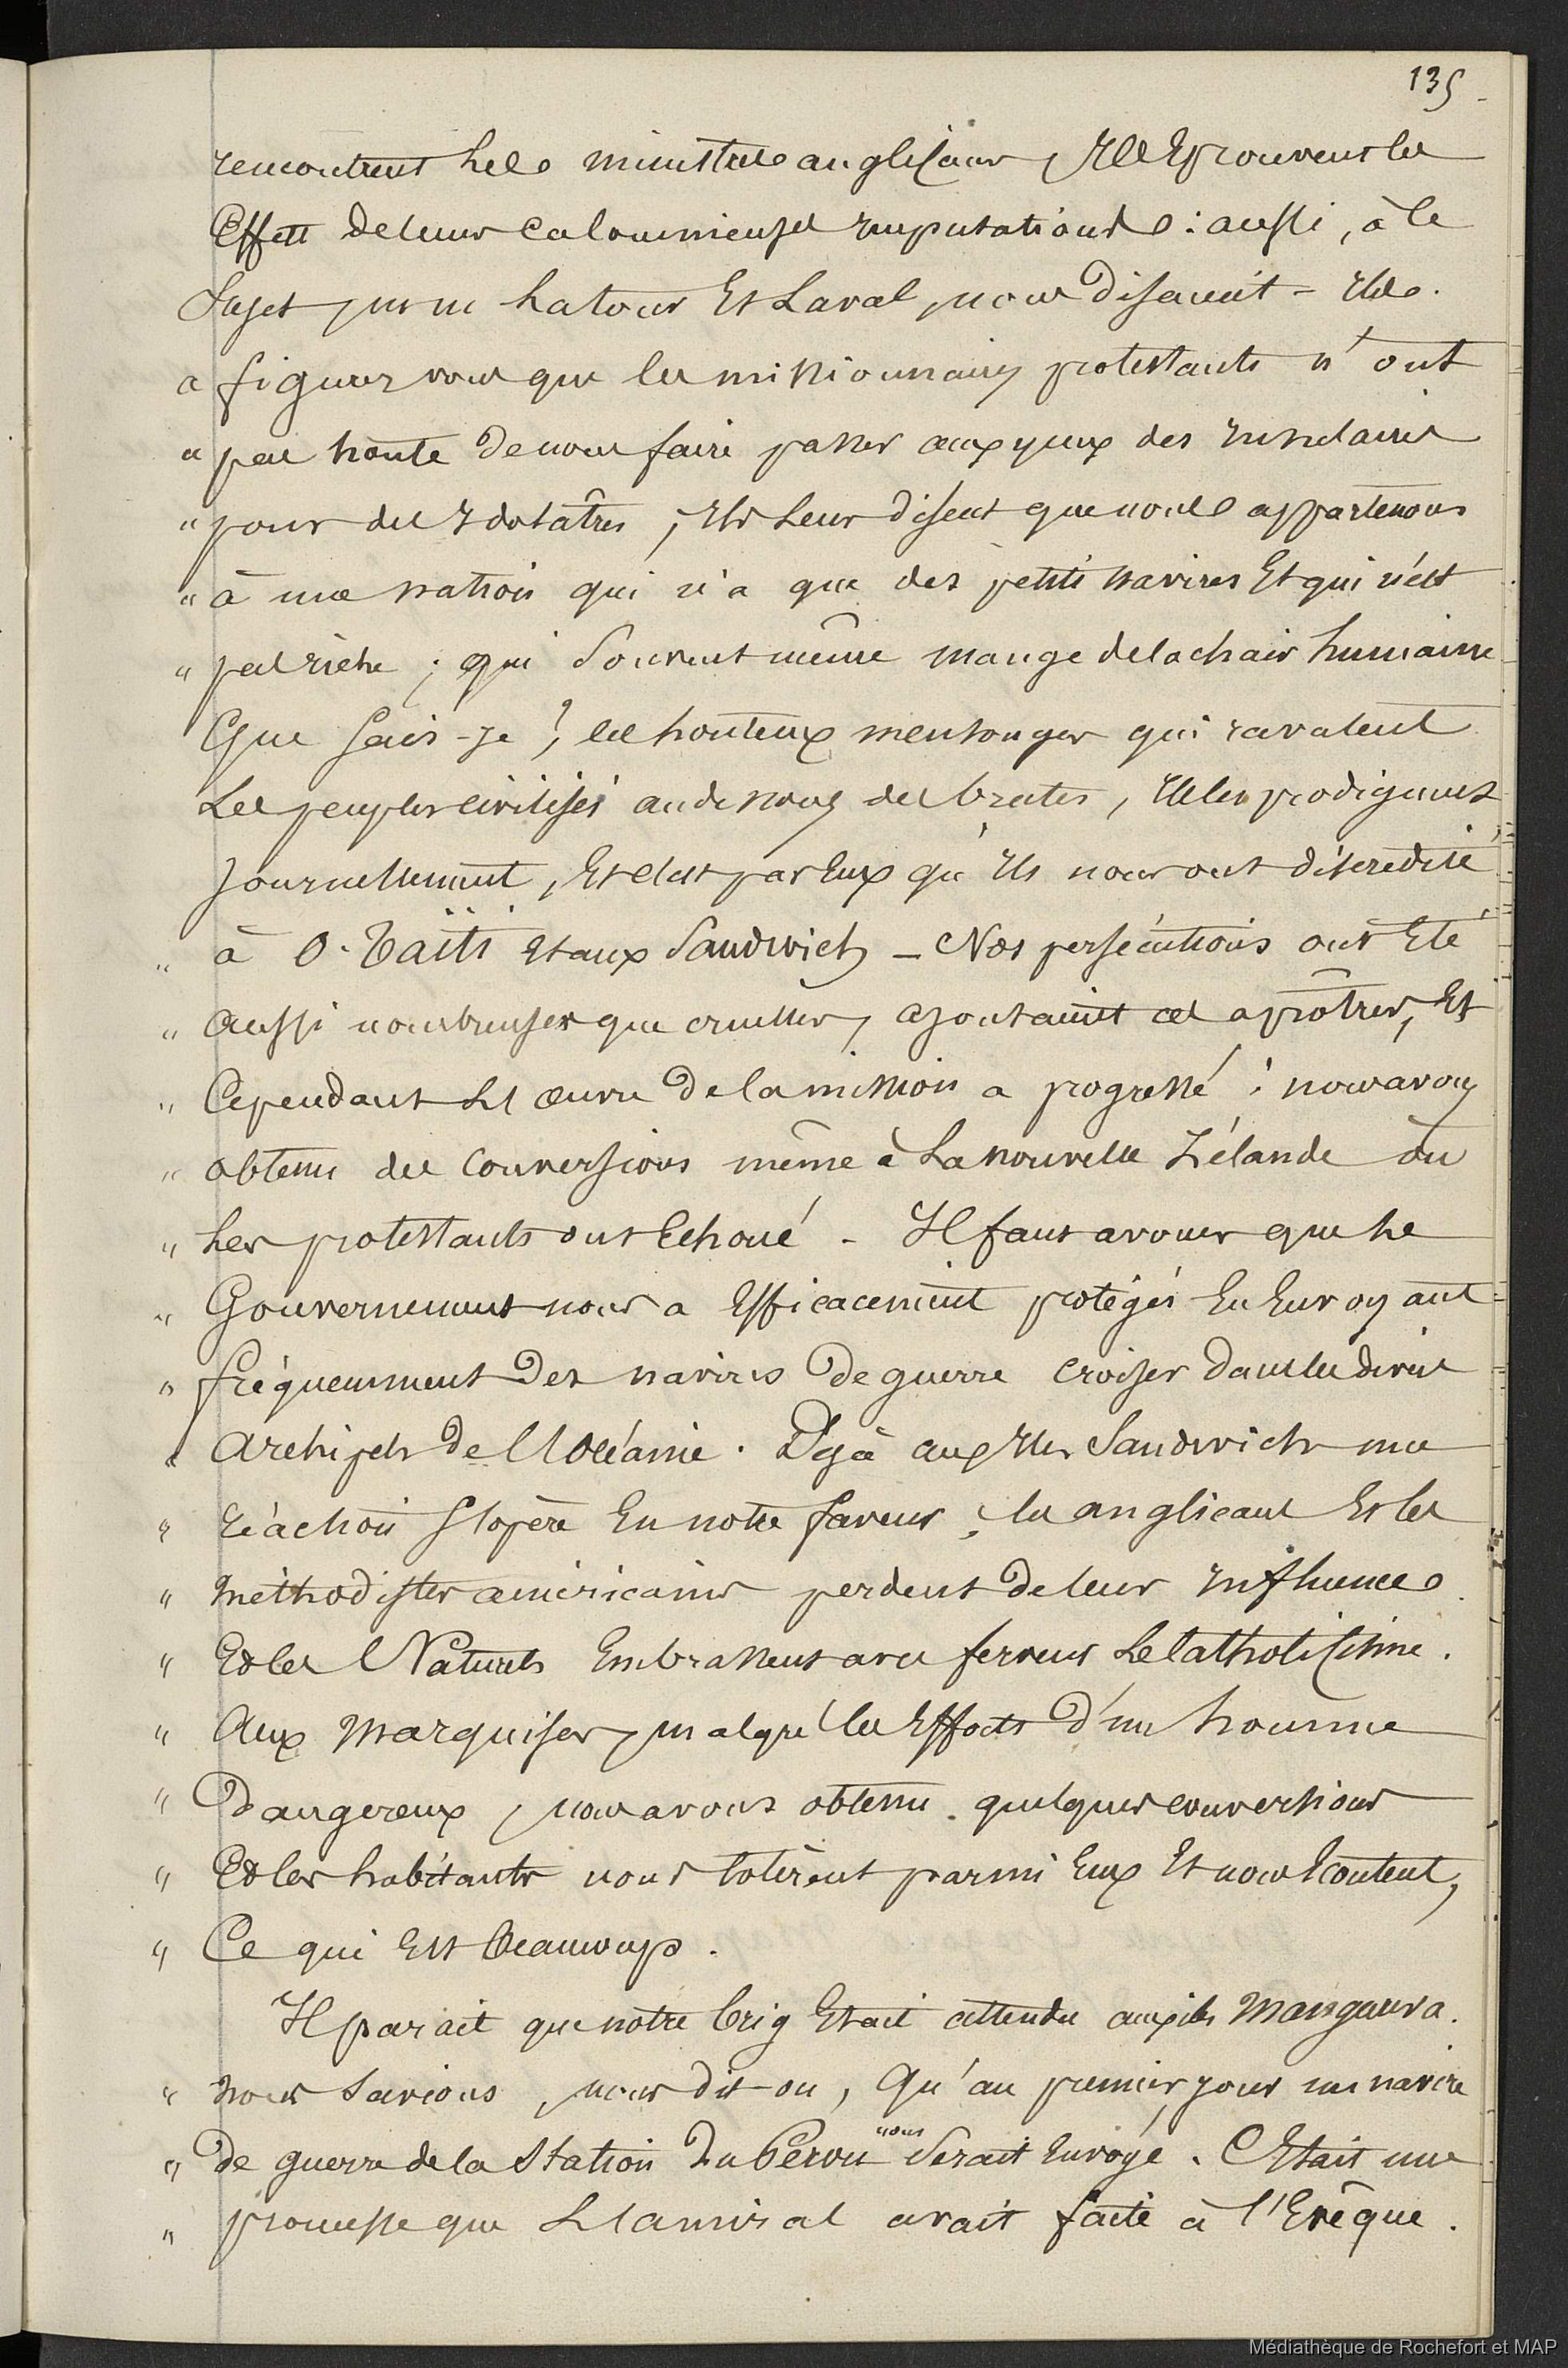 135
rencontrent les ministres anglicans, Ils Eprouvent les
Effets de leurs calomnieuses imputations : aussi, à ce
Sujet, mm Latour Et Laval, nous disaient-Ils.
" figurez vous que les missionnaires protestants n'ont
" pas honte de nous faire passer aux yeux des insulaires
" pour des Idolâtres ; Ils Leur disent que nous appartenons
" à une nation qui n'a que des petits navires Et qui n'est
" pas riche ; qui Souvent même mange de la chair humaine
Que Sais-je ? ces honteux mensonges qui ravalent
Les peuples civilisés au dessous des brutes, Ils les prodiguent
Journellement, Et c'est par Eux qu'Ils nous ont discrédité
" à O. Taïti Et aux Sandwich - Nos persécutions ont Eté
" Aussi nombreuses que cruelles, ajoutaient ces apôtres, Et
" Cependant L'œuvre de la mission a progressé ; nous avons
" obtenu des conversions même à La nouvelle Zélande où
" Les protestants ont Echoué - Il faut avouer que Le
" Gouvernement nous a Efficacement protégés En Envoyant
" fréquemment Des navires De guerre croiser dans les divers
" Archipels De L'Océanie. Déjà aux Iles Sandwich une
" réaction S'opère En notre faveur ; les anglicans Et les
" méthodistes américains perdent de leur influence
" Et les Naturels Embrassent avec ferveur Le Catholicisme.
" Aux Marquises, malgré les Efforts d'un homme
" Dangereux, nous avons obtenu quelques conversions
" Et les habitants nous tolèrent parmi Eux Et nous Ecoutent,
" Ce qui Est Beaucoup.
Il parait que notre brig Etait attendu aux iles Mangareva.
" nous Savions, nous dit-on, Qu'au premier jour un navire
" De guerre de la Station Du Pérou nous Serait Envoyé. C'Etait une
" promesse que L'amiral avait faite à l'Evêque.
Médiathèque de Rochefort et MAP